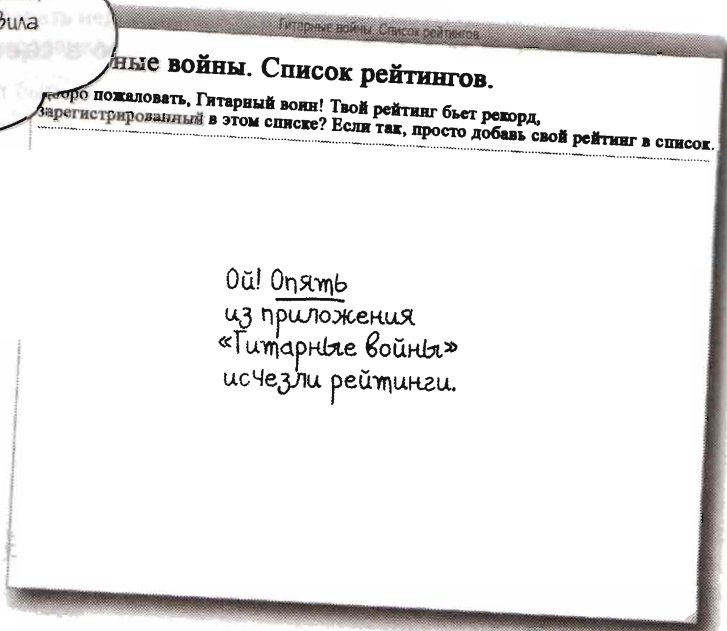 вила
Гитарные войны. Список рейтингов.
ные войны. Список рейтингов.
Добро пожаловать, Гитарный воин! Твой рейтинг бьет рекорд,
зарегистрированный в этом списке? Если так, просто добавь свой рейтинг в список.
Ой! Опять
из приложения
«Гитарные войны»
исчезли рейтинги.